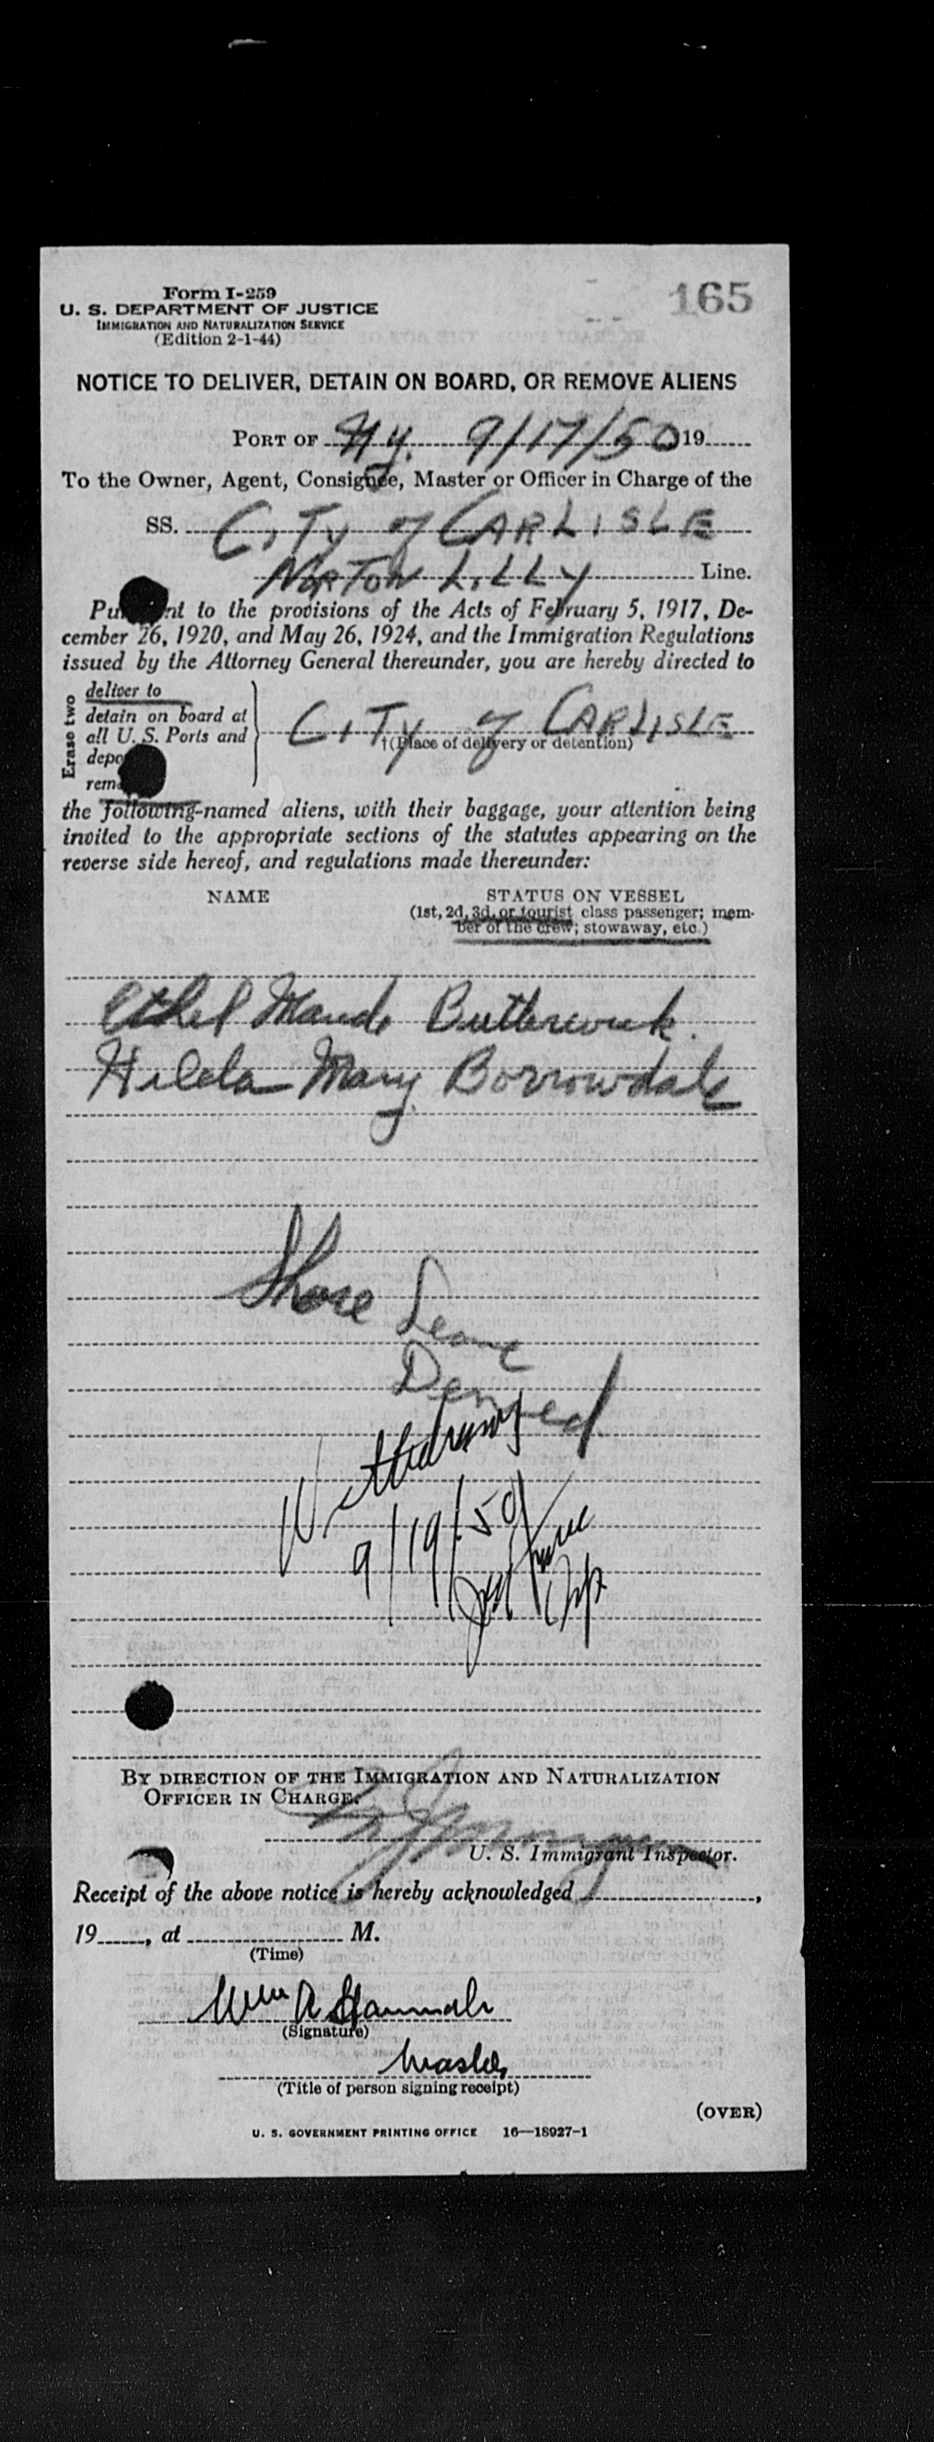 Form I-259
165
U. S. DEPARTMENT OF JUSTICE
IMMIGRATION AND NATURALIZATION SERVICE
(Edition 2-1-44)
NOTICE TO DELIVER, DETAIN ON BOARD, OR REMOVE ALIENS
PORT OF N.Y. 9/17/50 19
To the Owner, Agent, Consignee, Master or Officer in Charge of the
SS. CITY of CARLISLE
NORTON LILLY Line.
Pu nt to the provisions of the Acts of February 5, 1917, De-
cember 26, 1920, and May 26, 1924, and the Immigration Regulations
issued by the Attorney General thereunder, you are hereby directed to
Erase two
deliver to
detain on board at
all U. S. Ports and
depo
rem
CITY of CARLISLE
†(Place of delivery or detention)
the following-named aliens, with their baggage, your attention being
invited to the appropriate sections of the statutes appearing on the
reverse side hereof, and regulations made thereunder:
NAME STATUS ON VESSEL
(1st, 2d, 3d, or tourist class passenger; mem-
ber of the crew; stowaway, etc.)
Ethel Maude Butterwick
Hilda Mary Borrowdale
Shore Leave
Denied
Withdrawn
9/19/50
Insp
BY DIRECTION OF THE IMMIGRATION AND NATURALIZATION
OFFICER IN CHARGE:
U. S. Immigrant Inspector.
Receipt of the above notice is hereby acknowledged ,
19 , at M.
(Time)
Wm A Hannah
(Signature)
Master
(Title of person signing receipt)
(OVER)
U. S. GOVERNMENT PRINTING OFFICE 16—18927-1